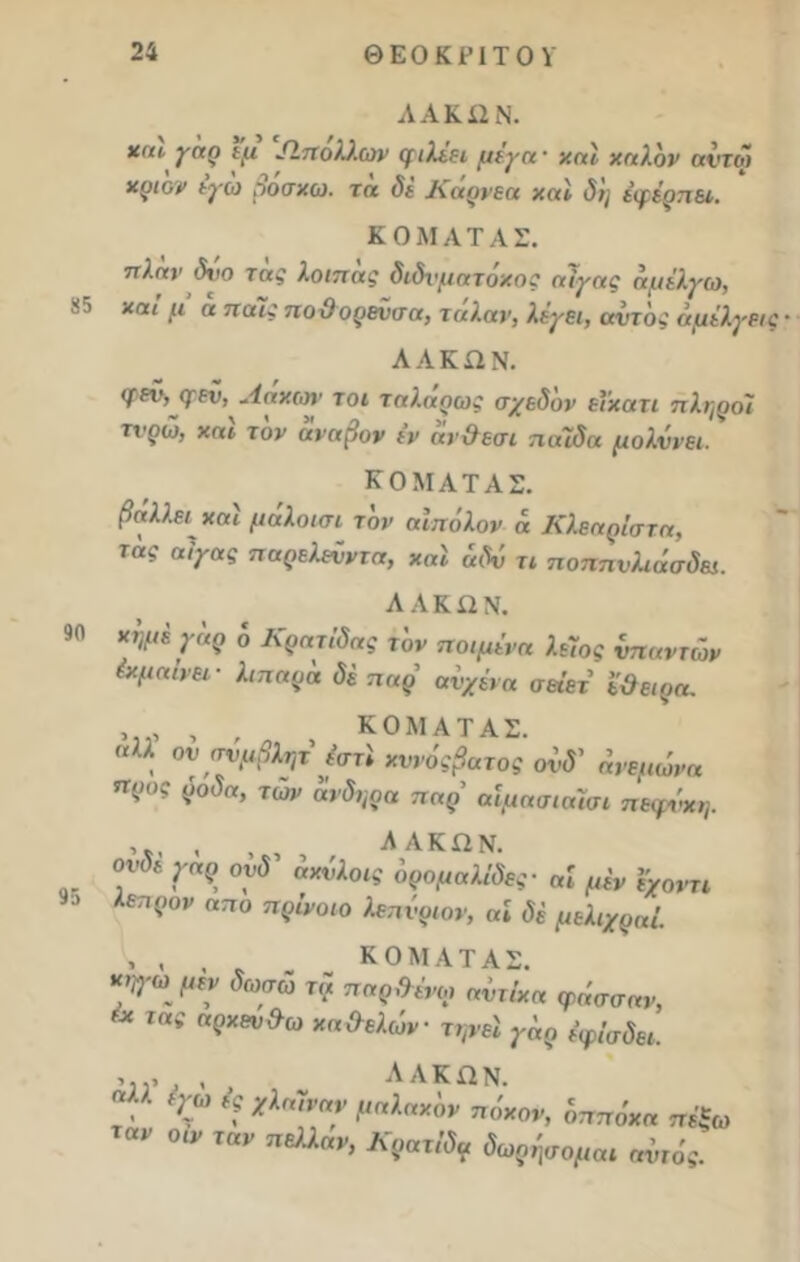 24 ΘΕΟΚΡΙΤΟΥ
ΛΑΚΩΝ.
καὶ γὰρ ἔμ᾽ Ὡπόλλων φιλέει μέγα· καὶ καλὸν αὐτῷ
κριὸν ἐγὼ βόσκω. τὰ δὲ Κάρνεα καὶ δὴ ἐφέρπει.
ΚΟΜΑΤΑΣ.
πλὰν δύο τὰς λοιπὰς διδυματόκος αἶγας ἀμέλγω,
85 καί μ᾽ ἁ παῖς ποθορεῦσα, τάλαν, λέγει, αὐτὸς ἀμέλγεις·
ΛΑΚΩΝ.
φεῦ, φεῦ, Λάκων τοι ταλάρως σχεδὸν εἴκατι πληροῖ
τυρῶ, καὶ τὸν ἄναβον ἐν ἄνθεσι παῖδα μολύνει.
ΚΟΜΑΤΑΣ.
βάλλει καὶ μάλοισι τὸν αἰπόλον ἁ Κλεαρίστα,
τὰς αἶγας παρελεῦντα, καὶ ἁδύ τι ποππυλιάσδει.
ΛΑΚΩΝ.
90 κἠμὲ γὰρ ὁ Κρατίδας τὸν ποιμένα λεῖος ὑπαντῶν
ἐκμαίνει· λιπαρὰ δὲ παρ᾽ αὐχένα σείετ᾽ ἔθειρα.
ΚΟΜΑΤΑΣ.
ἀλλ᾽ οὐ σύμβλητ᾽ ἐστὶ κυνόςβατος οὐδ᾽ ἀνεμώνα
πρὸς ῥόδα, τῶν ἄνδηρα παρ᾽ αἱμασιαῖσι πεφύκη.
ΛΑΚΩΝ.
οὐδὲ γὰρ οὐδ᾽ ἀκύλοις ὀρομαλίδες· αἱ μὲν ἔχοντι
95 λεπρὸν ἀπὸ πρίνοιο λεπύριον, αἱ δὲ μελιχραί.
ΚΟΜΑΤΑΣ.
κἠγὼ μὲν δωσῶ τᾷ παρθένῳ αὐτίκα φάσσαν,
ἐκ τᾶς ἀρκεύθω καθελών· τηνεὶ γὰρ ἐφίσδει.
ΛΑΚΩΝ.
ἀλλ᾽ ἐγὼ ἐς χλαῖναν μαλακὸν πόκον, ὁππόκα πέξω
τὰν οἶν τὰν πελλάν, Κρατίδᾳ δωρήσομαι αὐτός.